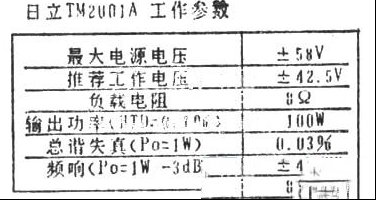 日立TM2001A 工作参数
最大电源电压 ±58V
推荐工作电压 ±42.5V
负载电阻 8Ω
输出功率 100W
总谐失真(Po=1W) 0.03%
频响(Po=1W -3dB ±4
8